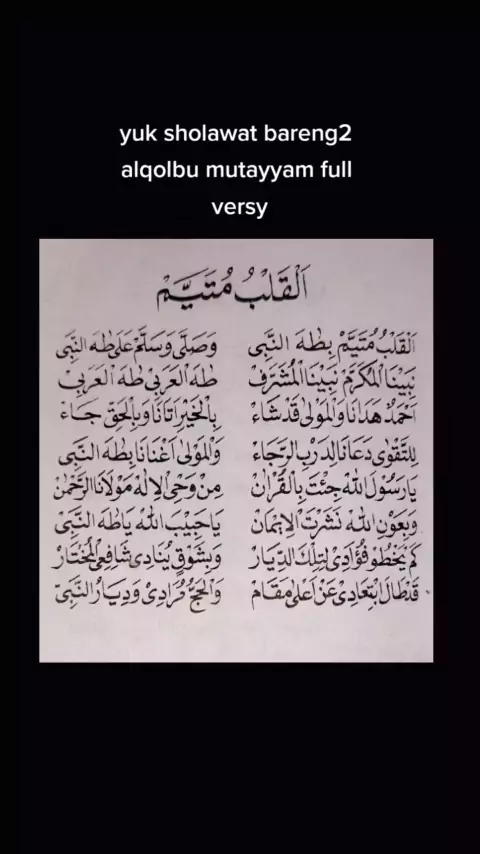 yuk sholawat bareng2
alqolbu mutayyam full
versy
اَلْقَلْبُ مُتَيَّمْ
اَلْقَلْبُ مُتَيَّمْ بِطٰهَ النَّبِى وَصَلَّى وَسَلَّمْ عَلَى طٰهَ النَّبِى
نَبِيْنَا الْمُكَرَّمْ نَبِيْنَا الْمُشَرَّفْ طٰهَ الْعَرَبِى طٰهَ الْعَرَبِى
اَحْمَدُ هَدَانَا وَالْمَوْلَى قَدْ شَاءْ بِالْخَيْرِ اَتَانَا وَبِالْحَقِّ جَاءْ
لِلتَّقْوٰى دَعَانَا لِدَرْبِ الرَّجَاءْ وَالْمَوْلَى اَغْنَانَا بِطٰهَ النَّبِى
يَا رَسُوْلَ اللهْ جِئْتَ بِالْقُرْاٰنْ مِنْ وَحْيِ الْاِلٰهْ مَوْلَانَا الرَّحْمٰنْ
وَبِعَوْنِ اللهْ نَشَرْتَ الْاِيْمَانْ يَا حَبِيْبَ اللهْ يَا طٰهَ النَّبِى
كَمْ يَخْطُو فُؤَادِى لِتِلْكَ الدِّيَارْ وَبِشَوْقٍ يُنَادِى شَافِعِى الْمُخْتَارْ
قَدْ طَالَ ابْتِعَادِى عَنْ اَعْلَى مَقَامْ وَالْحَجُّ مُرَادِىْ وَدِيَارُ النَّبِىّ